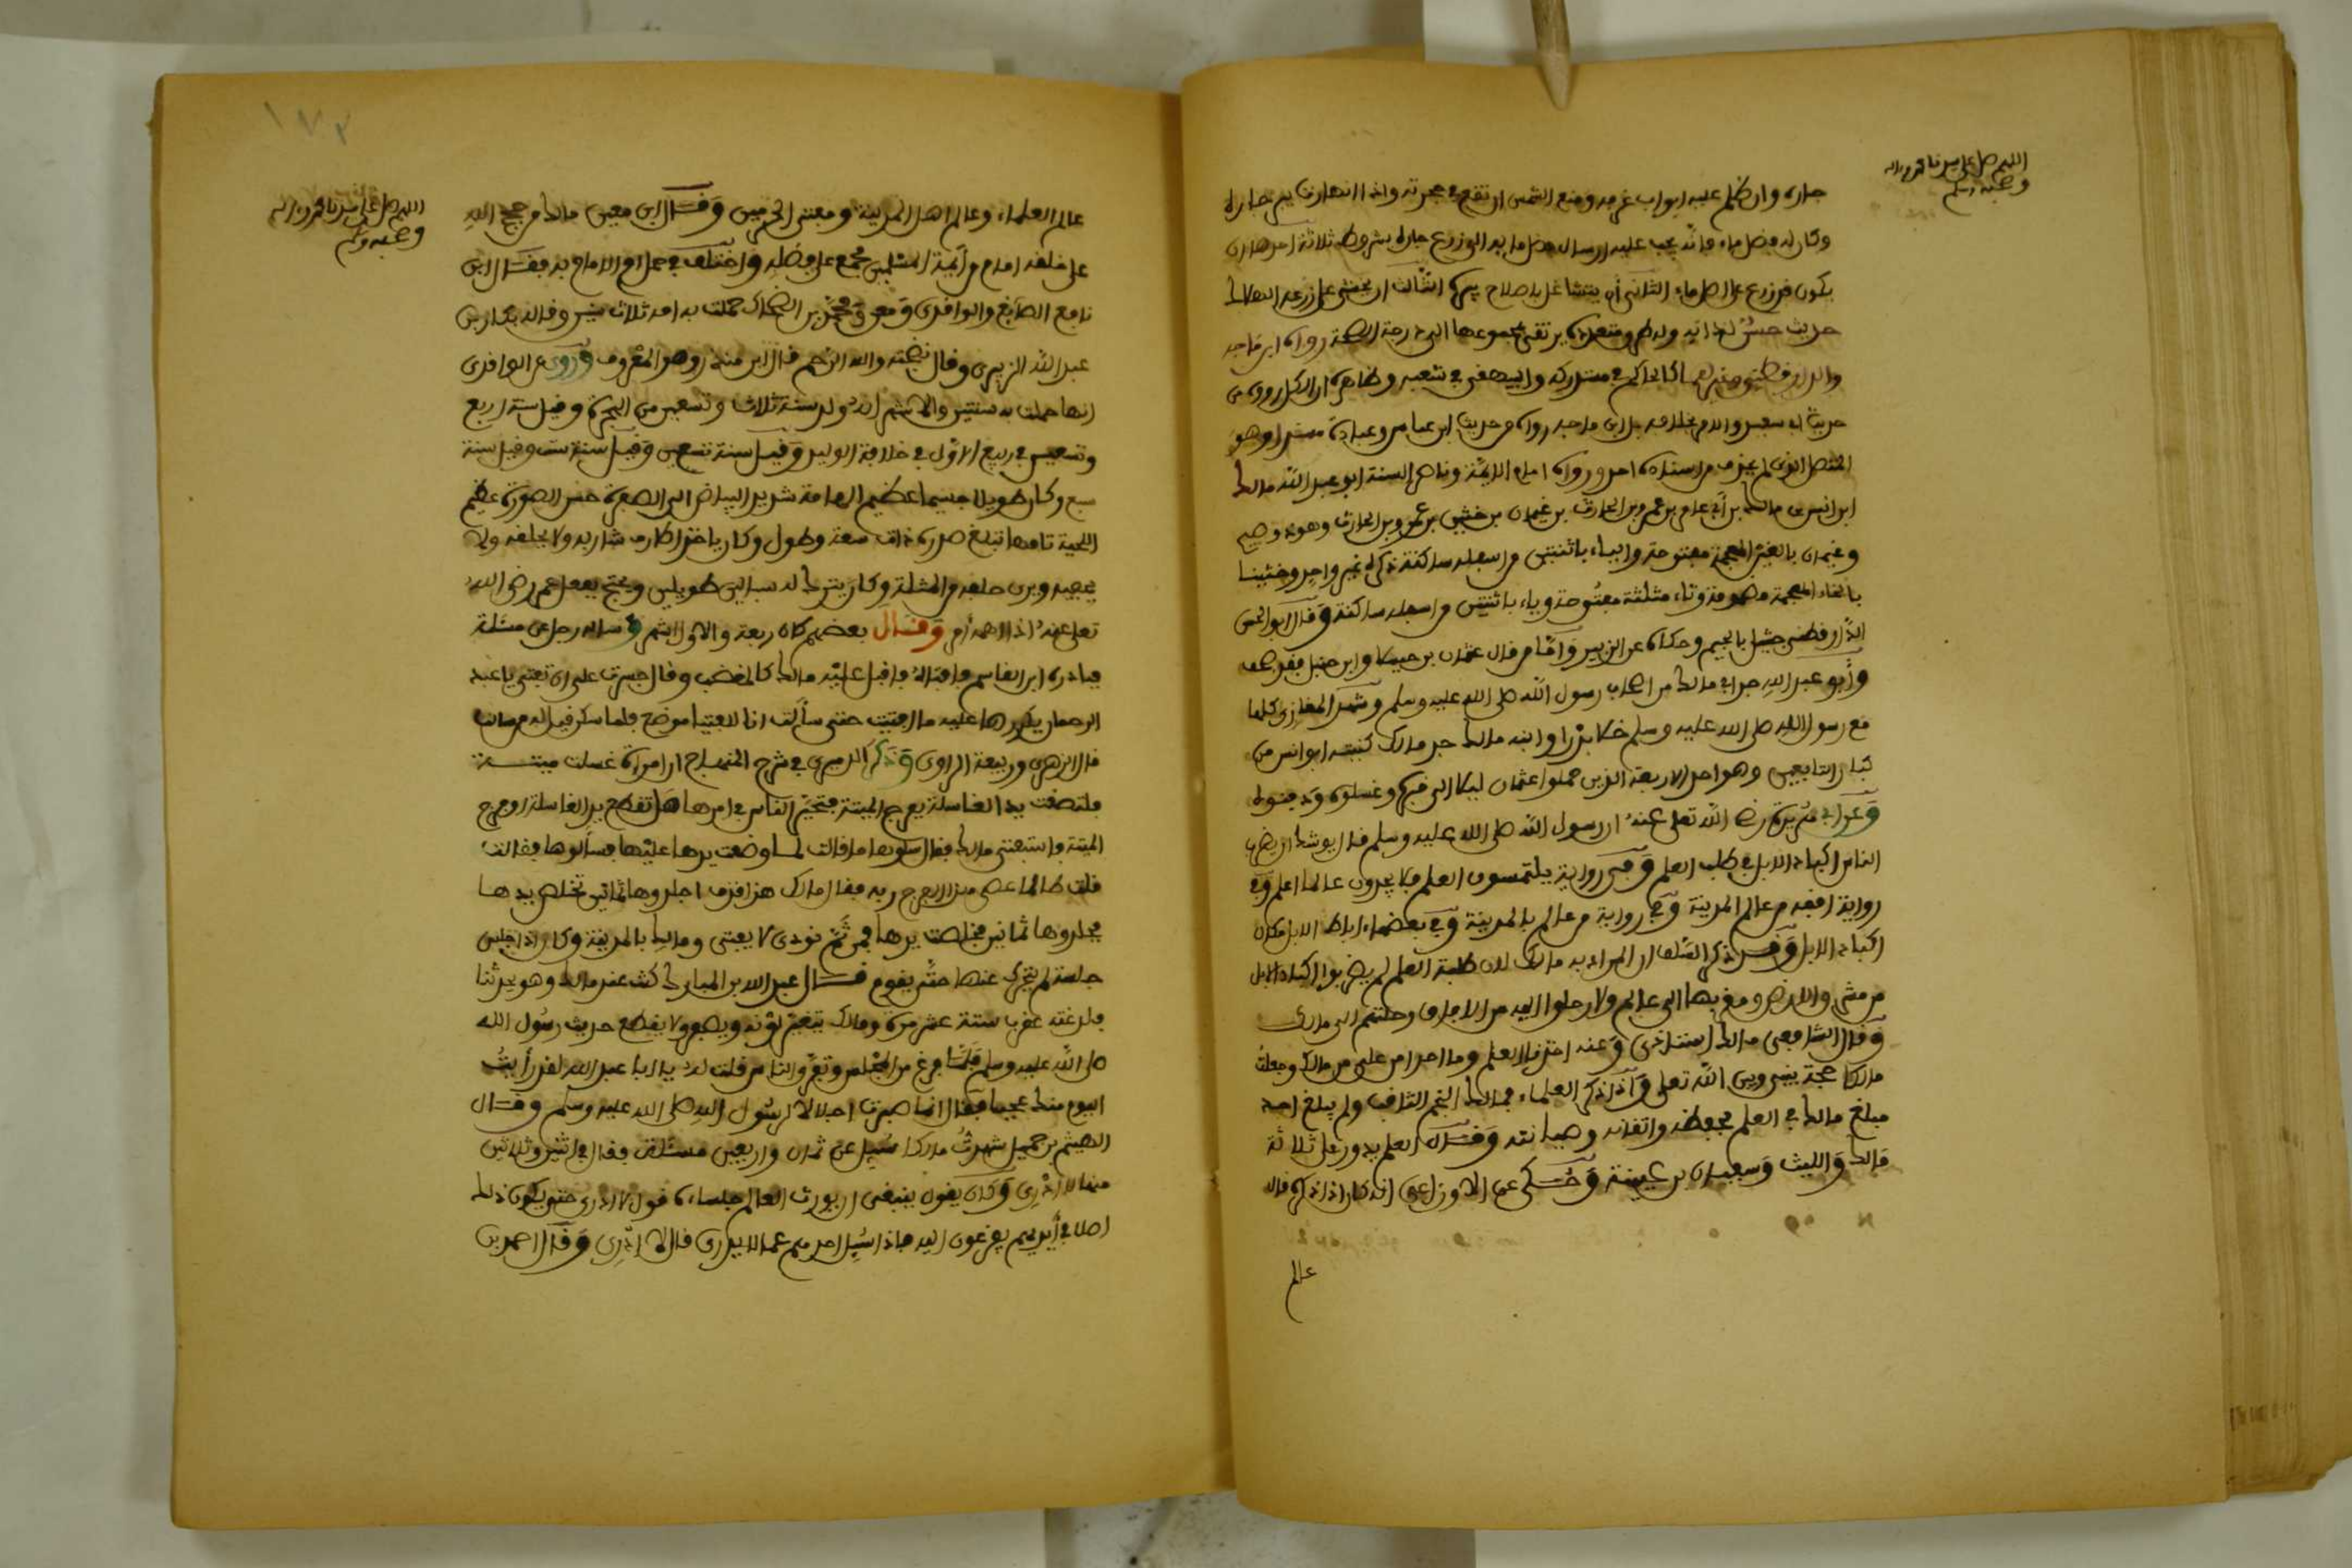 اللهم صل على سيدنا محمد وءاله
وصحبه وسلم
جاره وان ظلم عليه ابواب غرفه ومنع الشمس ان تقع في حجرته واذا انهارت بير جاره
وكان له فضل ماء فانه يجب عليه ارسال فضل مايه الى زرع جاره بشروط ثلاثة احدها ان
يكون قد زرع على اصل ماء الثاني أن يتشاغل باصلاح بيره الثالث ان يخشى على زرعه الهلاك
حديث حسن لذاته وله طرق متعددة يرتقي بمجموعها الى درجة الصحة رواه ابن ماجه
والدارقطني وغيرهما كالحاكم في مستدركه والبيهقي في شعبه وظاهره ان الكل رووه من
حديث ابي سعيد والامر بخلافه بل ابن ماجه رواه من حديث ابن عباس وعبادة مسندا وهو
المتصل الذي لم يحذف من اسناده احد ورواه امام الايمة وناصر السنة ابو عبد الله مالك
ابن انس بن مالك بن أبي عامر بن عمرو بن الحارث بن غيمان بن خثيل بن عمرو بن الحارث وهو ذو اصبح
وغيمان بالغين المعجمة مفتوحة والياء باثنتين من اسفله ساكنة ذكره غير واحد وخثيل
بالخاء المعجمة مضمومة وثاء مثلثة مفتوحة وياء باثنتين من اسفله ساكنة وقال ابو الحسن
الدارقطني جثيل بالجيم وحكاه عن الزبير واما من قال عثمان بن جميل او ابن حنبل فقد صحف
وأبو عبد الله جد ابي مالك من اصحاب رسول الله صلى الله عليه وسلم وشهد المغازي كلها
مع رسول الله صلى الله عليه وسلم خلا بدرا وابنه مالك جد مالك كنيته ابو انس من
كبار التابعين وهو احد الاربعة الذين حملوا عثمان ليلا الى قبره وغسلوه ودفنوه
وعن ابي هريرة رضي الله تعلى عنه ان رسول الله صلى الله عليه وسلم قال يوشك ان يضرب
الناس اكباد الابل في طلب العلم وفي رواية يلتمسون العلم فلا يجدون عالما اعلم وفي
رواية افقه من عالم المدينة وفي رواية من عالم بالمدينة وفي بعضها اباط الابل مكان
اكباد الابل وقد ذكر السلف ان المراد به مالك لان طلبة العلم لم يضربوا اكباد الابل
من مشرق الارض ومغربها الى عالم ولا رحلوا اليه من الافاق رحلتهم الى مالك
وقال الشافعي مالك استاذي وعنه اخذنا العلم وما احد امن علي من مالك وجعلت
مالكا حجة بيني وبين الله تعلى واذا ذكر العلماء فمالك النجم الثاقب ولم يبلغ احد
مبلغ مالك في العلم لحفظه واتقانه وصيانته وقال العلم يدور على ثلاثة
مالك والليث وسفيان بن عيينة وحكى عن الاوزاعي انه كان اذا ذكره قال
عالم
١٧٢
اللهم صل على سيدنا محمد وءاله
وصحبه وسلم
عالم العلماء وعالم اهل المدينة ومفتي الحرمين وقال ابن معين مالك من حجج الله
على خلقه امام من أيمة المسلمين مجمع على فضله واختلف في حمل ام الامام به فقال ابن
نافع الصايغ والواقدي ومعن ومحمد بن الضحاك حملت به امه ثلاث سنين وقاله بكار بن
عبد الله الزبيري وقال نضجته والله الرحم قال ابن منذر وهو المعروف وروي عن الواقدي
انها حملت به سنتين والاشهر انه ولد سنة ثلاث وتسعين من الهجرة وقيل سنة اربع
وتسعين في ربيع الاول في خلافة الوليد وقيل سنة تسعين وقيل سنة ست وقيل سنة
سبع وكان طويلا جسيما عظيم الهامة شديد البياض الى الصفرة حسن الصورة عظيم
اللحية تامها تبلغ صدره ذات سعة وطول وكان ياخذ اطراف شاربه ولا يحلقه ولا
يحفيه ويرى حلقه من المثلة وكان يترك له سبالين طويلين ويحتج بفعل عمر رضي الله
تعلى عنه اذا اهمه أمر وقال بعضهم كان ربعة والاول اشهر وساله رجل عن مسئلة
فبادره ابن القاسم فافتاه فاقبل عليه مالك كالمغضب وقال جسرت على ان تفتي يا عبد
الرحمان يكررها عليه ما افتيت حتى سألت انا للفتيا موضع فلما سكن قيل له من سالت
قال الزهري وربيعة الراوي وذكر الدميري في شرح المنهاج ان امرأة غسلت ميتة
فلتصقت يد الغاسلة بفرج الميتة فتحير الناس في امرها هل تقطع يد الغاسلة او فرج
الميتة فاستفتي مالك فقال سلوها ما قالت لما وضعت يدها عليها فسألوها فقالت
قلت طالما عصى هذا الفرج ربه فقال مالك هذا قذف اجلدوها ثمانين تخلص يدها
فجلدوها ثمانين فخلصت يدها فمن ثم نودي لا يفتى ومالك بالمدينة وكان اذا جلس
جلسة لم يتحرك عنها حتى يقوم قال عبد الله بن المبارك كنت عند مالك وهو يحدثنا
فلدغته عقرب ستة عشر مرة ومالك يتغير لونه ويصبر ولا يقطع حديث رسول الله
صلى الله عليه وسلم فلما فرغ من المجلس وتفرق الناس قلت له يا ابا عبد الله لقد رأيت
اليوم منك عجبا فقال انما صبرت اجلالا لرسول الله صلى الله عليه وسلم وقال
الهيثم بن جميل شهدت مالكا سئل عن ثمان واربعين مسئلة فقال في اثنين وثلاثين
منها لا ادري وكان يقول ينبغي ان يورث العالم جلساءه قول لا ادري حتى يكون ذلك
اصلا في أيديهم يفزعون اليه فاذا سئل احدهم عما لا يدري قال لا ادري وقال احمد بن